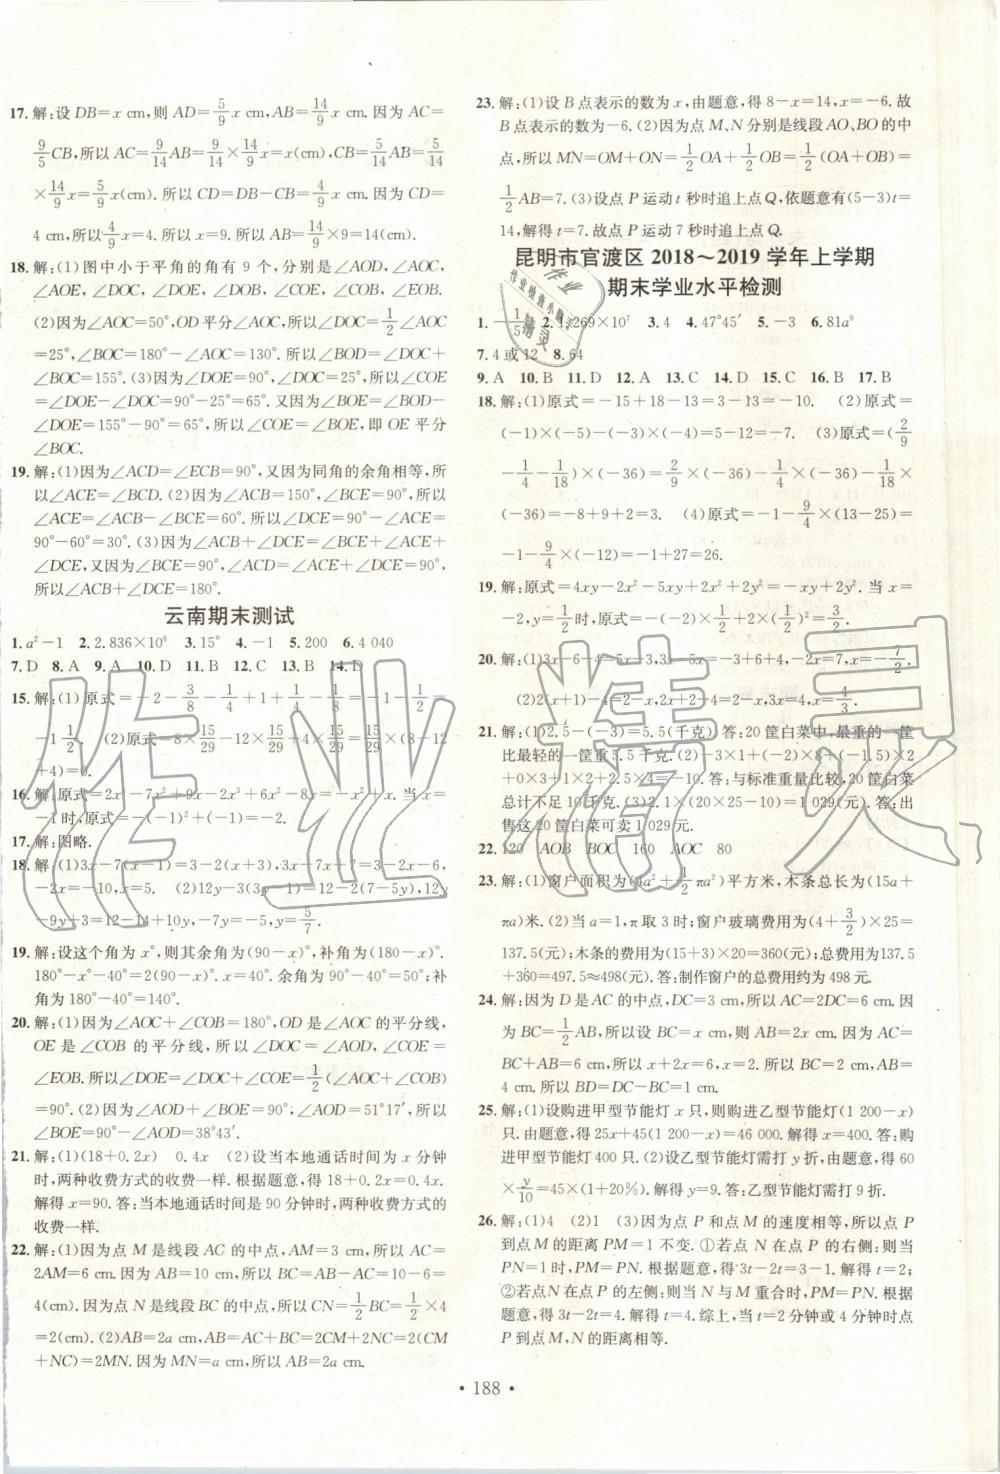 17. 解:设 DB=x cm,则 AD=5/9 x cm,AB=14/9 x cm.因为 AC=
9/5 CB,所以 AC=9/14 AB=9/14×14/9 x=x(cm),CB=5/14 AB=5/14
×14/9 x=5/9 x(cm).所以 CD=DB-CB=4/9 x cm.因为 CD=
4 cm,所以 4/9 x=4.所以 x=9.所以 AB=14/9×9=14(cm).
18. 解:(1)图中小于平角的角有 9 个,分别是∠AOD,∠AOC,
∠AOE,∠DOC,∠DOE,∠DOB,∠COE,∠COB,∠EOB.
(2)因为∠AOC=50°,OD平分∠AOC,所以∠DOC=1/2∠AOC
=25°,∠BOC=180°-∠AOC=130°.所以∠BOD=∠DOC+
∠BOC=155°.(3)因为∠DOE=90°,∠DOC=25°,所以∠COE
=∠DOE-∠DOC=90°-25°=65°.又因为∠BOE=∠BOD-
∠DOE=155°-90°=65°,所以∠COE=∠BOE,即 OE 平分
∠BOC.
19. 解:(1)因为∠ACD=∠ECB=90°,又因为同角的余角相等,所
以∠ACE=∠BCD.(2)因为∠ACB=150°,∠BCE=90°,所以
∠ACE=∠ACB-∠BCE=60°.所以∠DCE=90°-∠ACE=
90°-60°=30°.(3)因为∠ACB+∠DCE=∠BCE+∠ACE+
∠DCE,又因为∠BCE=90°,∠ACD=∠ACE+∠DCE=90°,
所以∠ACB+∠DCE=180°.
云南期末测试
1. a²-1 2. 2.836×10⁶ 3. 15° 4. -1 5. 200 6. 4 040
7. D 8. A 9. A 10. D 11. B 12. C 13. B 14. D
15. 解:(1)原式=-2-3/8-1/4+1+3/8-1/4=-1-1/2=
-1 1/2. (2)原式=8×15/29-12×15/29+4×15/29=15/29×(8-12
+4)=0.
16. 解:原式=2x³-7x²+9x-2x³+6x²-8x=-x²+x.当 x=
-1时,原式=-(-1)²+(-1)=-2.
17. 解:图略.
18. 解:(1)3x-7(x-1)=3-2(x+3),3x-7x+7=3-2x-6,
-2x=-10,x=5. (2)12y-3(3y-1)=12-2(7-5y),12y
-9y+3=12-14+10y,-7y=-5,y=5/7.
19. 解:设这个角为 x°,则其余角为(90-x)°,补角为(180-x)°.
180°-x°-40°=2(90-x)°.x=40.余角为 90°-40°=50°;补
角为 180°-40°=140°.
20. 解:(1)因为∠AOC+∠COB=180°,OD是∠AOC的平分线,
OE是∠COB的平分线,所以∠DOC=∠AOD,∠COE=
∠EOB.所以∠DOE=∠DOC+∠COE=1/2(∠AOC+∠COB)
=90°.(2)因为∠AOD+∠BOE=90°,∠AOD=51°17′,所以
∠BOE=90°-∠AOD=38°43′.
21. 解:(1)(18+0.2x) 0.4x (2)设当本地通话时间为 x 分钟
时,两种收费方式的收费一样.根据题意,得 18+0.2x=0.4x.
解得 x=90.答:当本地通话时间是 90 分钟时,两种收费方式的
收费一样.
22. 解:(1)因为点 M 是线段 AC 的中点,AM=3 cm,所以 AC=
2AM=6 cm.因为 AB=10 cm,所以 BC=AB-AC=10-6=
4(cm).因为点 N 是线段 BC 的中点,所以 CN=1/2 BC=1/2×4
=2(cm).(2)AB=AC+BC=2CM+2NC=2(CM
+NC)=2MN.因为 MN=a cm,所以 AB=2a cm.
23. 解:(1)设 B 点表示的数为 x,由题意,得 8-x=14,x=-6.故
B 点表示的数为-6.(2)因为点 M、N 分别是线段 AO、BO 的中
点,所以 MN=OM+ON=1/2 OA+1/2 OB=1/2(OA+OB)=
1/2 AB=7.(3)设点 P 运动 t 秒时追上点 Q,依题意有(5-3)t=
14,解得 t=7.所以点 P 运动 7 秒时追上点 Q.
昆明市官渡区 2018~2019 学年上学期
期末学业水平检测
1. -1/5 2. 1.269×10⁷ 3. 4 4. 47°45′ 5. -3 6. 81a⁹
7. 4 或 12 8. 64
9. A 10. B 11. D 12. A 13. C 14. D 15. C 16. B 17. B
18. 解:(1)原式=-15+18-13=3-13=-10. (2)原式=
(-1)×(-5)-(-3)×(-4)=5-12=-7. (3)原式=(2/9
-1/4-1/18)×(-36)=2/9×(-36)-1/4×(-36)-1/18×
(-36)=-8+9+2=3. (4)原式=-1-9/4×(13-25)=
-1-9/4×(-12)=-1+27=26.
19. 解:原式=4xy-2x²-5xy+2x²+2y²=-xy+2y².当 x=
-2,y=1/2时,原式=-(-2)×1/2+2×(1/2)²=1+1/2=3/2.
20. 解:(1)3x-6+4=5x-3,3x-5x=-3+6+4,-2x=7,x=-7/2.
(2)2(x+1)-4=2-x,2x+2-4=2-x,3x=4,x=4/3.
21. 解:(1)2.5-(-3)=5.5(千克) 答:20 筐白菜中,最重的一筐
比最轻的一筐重 5.5 千克.(2)-3×1+(-2)×8+(-1.5)×2
+0×3+1×2+2.5×4=-10.答:与标准重量比较,20 筐白菜
总计不足 10 千克.(3)2.1×(20×25-10)=1 029(元).答:出
售这 20 筐白菜可卖 1 029 元.
22. 120 AOB BOC 160 AOC 80
23. 解:(1)窗户面积为(4a²+1/2πa²)平方米,木条总长为(15a+
πa)米.(2)当 a=1,π取 3 时;窗户玻璃费用为(4+3/2)×25=
137.5(元);木条的费用为(15+3)×20=360(元);总费用为137.5
+360=497.5≈498(元).答:制作窗户的总费用约为 498 元.
24. 解:因为 D 是 AC 的中点,DC=3 cm,所以 AC=2DC=6 cm.因
为 BC=1/2 AB,所以设 BC=x cm,则 AB=2x cm.因为 AC=
BC+AB=6 cm,所以 x+2x=6,x=2.所以 BC=2 cm,AB=
4 cm.所以 BD=DC-BC=1 cm.
25. 解:(1)设购进甲型节能灯 x 只,则购进乙型节能灯(1 200-x)
只.由题意,得 25x+45(1 200-x)=46 000.解得 x=400.答:购
进甲型节能灯 400 只.(2)设乙型节能灯需打 y折,由题意,得 60
×y/10=45×(1+20%).解得 y=9.答:乙型节能灯需打 9 折.
26. 解:(1)4 (2)1 (3)因为点 P 和点 M 的速度相等,所以点 P
到点 M 的距离 PM=1 不变.①若点 N 在点 P 的右侧:则当
PN=1时,PM=PN.根据题意,得3t-2t=3-1.解得 t=2;
②若点N在点P的左侧:则当N与M重合时,PM=PN.根据
题意,得 3t-2t=4.解得 t=4.综上,当 t=2分钟或4分钟时点
P 到点 M、N 的距离相等.
• 188 •
作业精灵